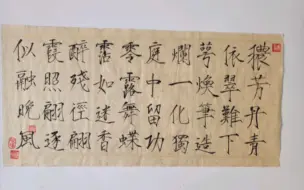 穠芳丹青
依翠難下
萼煥筆造
爛一化獨
庭中留功
零露舞蝶
霑如迷香
醉殘徑翩
霞照翩逐
似融晚風